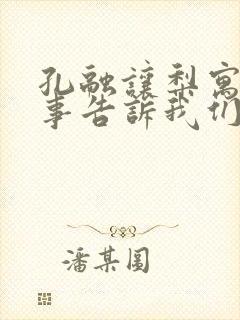 孔融讓梨寓
事告訴我们
潘某圆